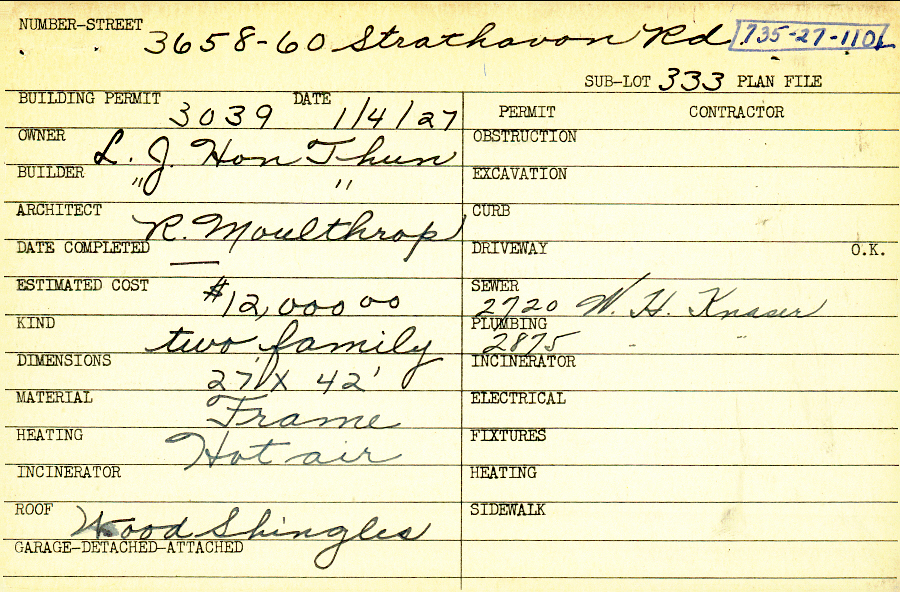 NUMBER-STREET 3658-60 Strathavon Rd 735-27-110
SUB-LOT 333 PLAN FILE
BUILDING PERMIT 3039 DATE 1/4/27
PERMIT CONTRACTOR
OWNER L. J. Hon Thun
OBSTRUCTION
BUILDER " "
EXCAVATION
ARCHITECT R. Moulthrop
CURB
DATE COMPLETED —
DRIVEWAY O.K.
ESTIMATED COST $12,000 00
SEWER 2720 W. H. Knaser
KIND two family
PLUMBING 2875 " "
DIMENSIONS 27' X 42'
INCINERATOR
MATERIAL Frame
ELECTRICAL
HEATING Hot air
FIXTURES
INCINERATOR
HEATING
ROOF Wood Shingles
SIDEWALK
GARAGE-DETACHED-ATTACHED